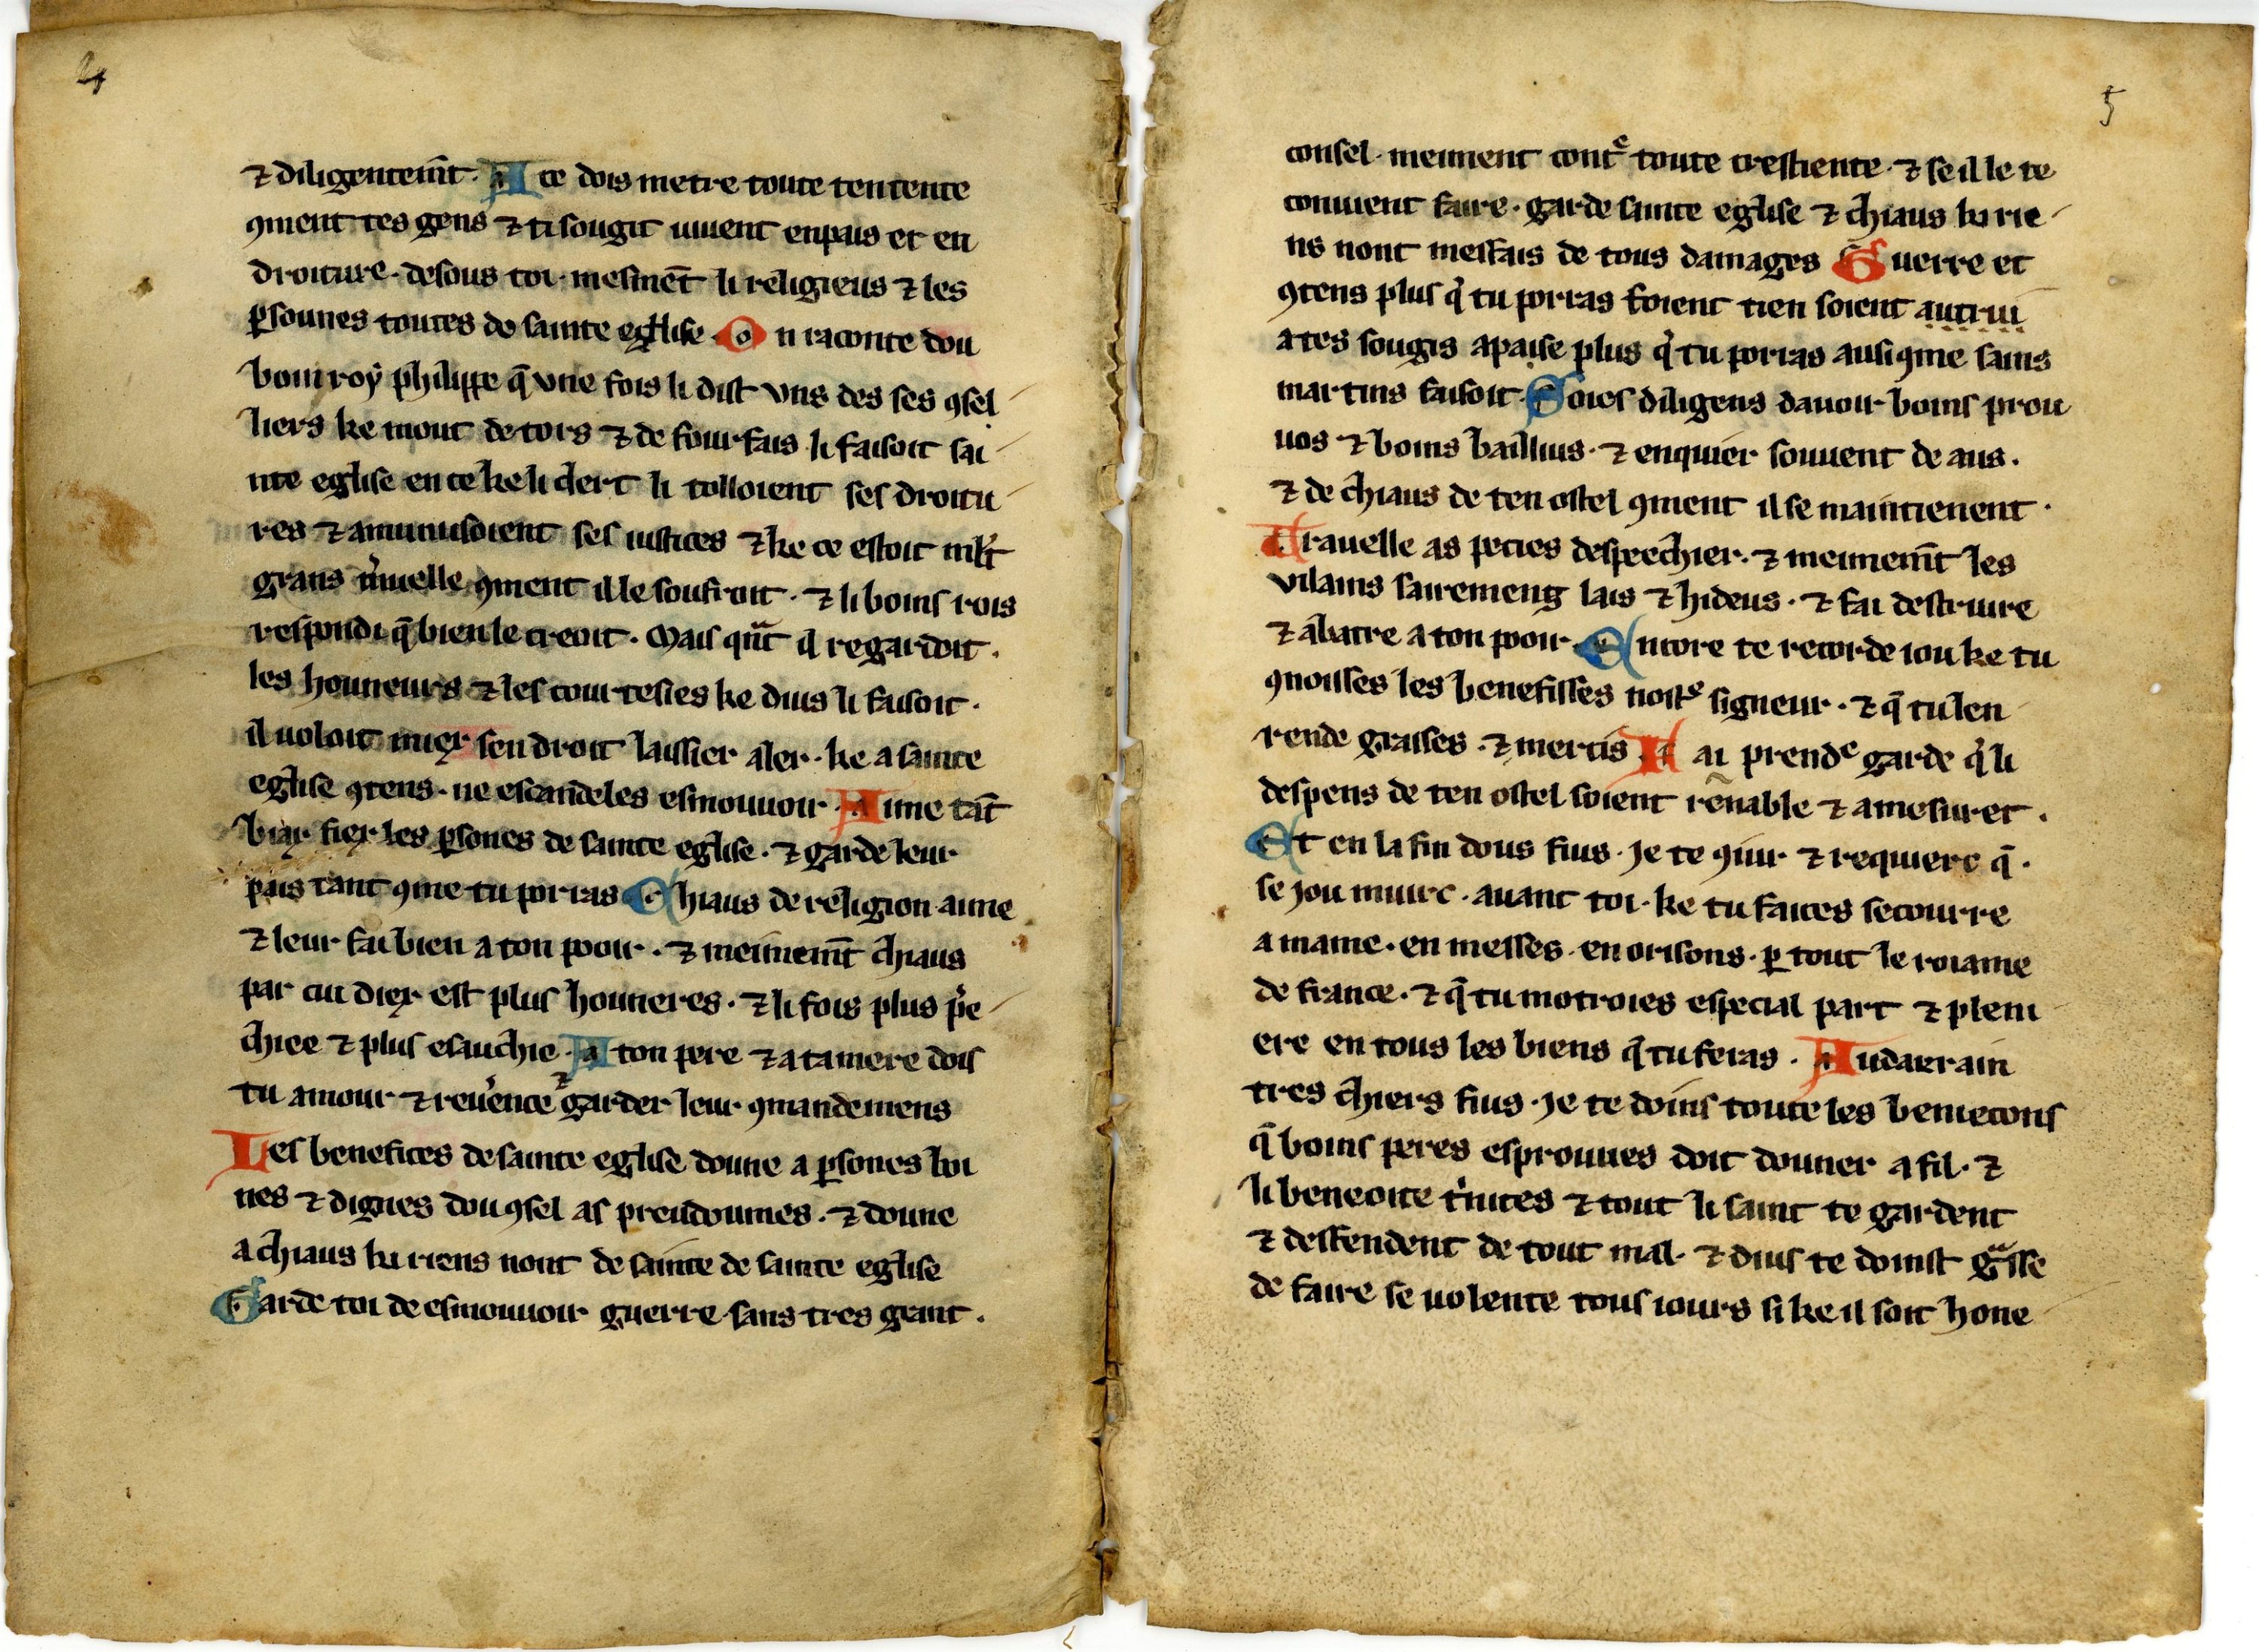 4
⁊ diligentem̄t · A ce dois metre toute tentente
ꝯment tes gens ⁊ ti sougit uiuent enpais et en
droiture · desous toi · mesmem̄t li religieus ⁊ les
ꝑsounes toutes de sainte eglise · On raconte dou
bouı roy phılıppe q̄ vne fois li dist vns des ses ꝯsel
liers ke mout de tors ⁊ de fourfais li faisoit sai
nte eglise en ce ke li clert li tolloient ses droitu
res ⁊ amunisoient ses iustices ⁊ ke ce estoit ml̄t
grans m̓uelle ꝯment il le soufroit · ⁊ li boins rois
respondi q̄ bien le creoit · Mais qᵃnt il regardoit ·
les houneurs ⁊ les courtesies ke dius li faisoit ·
il uoloit miex sen droit laissier aler · ke a sainte
eglise ꝯtens · ne escandeles esmouuoir · Aime tāt
biax fiex les ꝑsones de sainte eglise · ⁊ garde leur
pais tant ꝯme tu porras Chiaus de religion aime
⁊ leur fai bien a ton pooir · ⁊ meimem̄t chiaus
par cui diex est plus houneres · ⁊ li fois plus p̓e
chiee ⁊ plus esauchie · A ton pere ⁊ a ta mere dois
tu amour ⁊ reu̓ence ⁊ garder leur ꝯmandemens
Les benefices de sainte eglise doune a ꝑsones boi
nes ⁊ dignes dou ꝯsel as preudoumes · ⁊ doune
a chiaus ki riens nont de sainte de sainte eglise
Garde toi de esmouuoir guerre sans tres grant ·
5
consel · meiment contᵉ toute crestiente · ⁊ se il le te
conuient faire · garde sainte eglise ⁊ chiaus ki rie
ns nont mesfais de tous damages Guerre et
ꝯtens plus q̓ tu porras soient tien soient autrui
a tes sougis apaise plus q̓ tu porras ausi ꝯme sains
martins faisoit · Soies diligens dauoir boins prou
uos ⁊ boins baillius · ⁊ enquier souuent de aus ·
⁊ de chiaus de ten ostel ꝯment il se maintienent ·
Trauelle as pecies despeechier · ⁊ meimem̄t les
vilains sairemeng lais ⁊ hideus · ⁊ fai destruire
⁊ abatre a ton pooir · Encore te recorde iou ke tu
ꝯnoisses les benefisses nostᵉ signeur · ⁊ q̄ tu len
rende grasses · ⁊ mercis Fai prendᵉ garde q̓ li
despens de ten ostel soient rēnable ⁊ amesuret ·
Et en la fin dous fius · Je te ꝯiur ⁊ requierc q̄ ·
se jou muirc · auant toi · ke tu faices secourre
a mame · en messes · en orisons · ꝑ tout le roiame
de france · ⁊ q̄ tu motroies especial part ⁊ pleni
ere en tous les biens q̄ tu feras · Au daerrain
tres chiers fius · Je te doins toute les beniecons
q̄ boins peres esprouues doit douner a fil · ⁊
li beneoite t̓nites ⁊ tout li saint te gardent
⁊ desfendent de tout mal · ⁊ dius te doinst gᵃsse
de faire se uolente tous iours si ke il soit hone